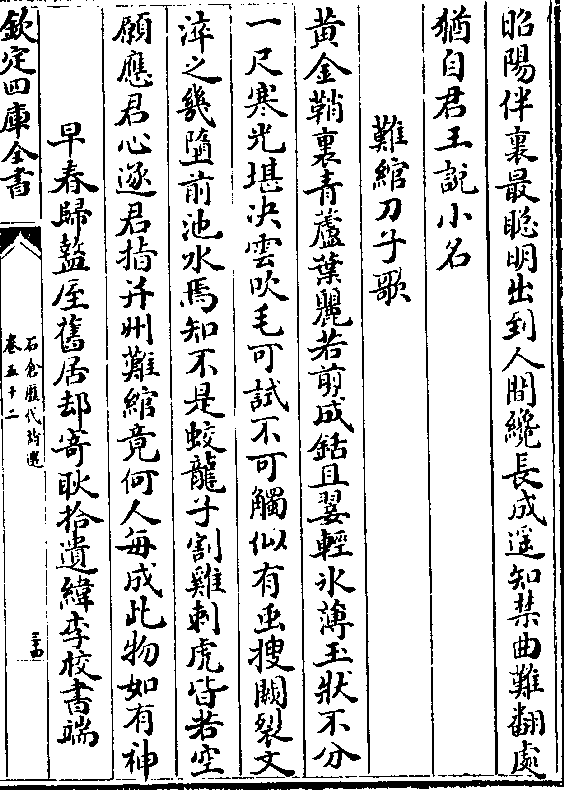 昭陽伴裏最聰明出到人間纔長成遥知禁曲難翻處
猶自君王説小名
難綰刀子歌
黄金鞘裏青蘆葉麗若剪成銛且翣輕氷薄玉狀不分
一尺寒光堪决雲吹毛可試不可觸似有虫搜闕裂文
淬之幾墮前池水焉知不是蛟龍子割雞刺虎皆若空
願應君心逐君指并州難綰竟何人每成此物如有神
早春歸盩厔舊居却寄耿拾遺緯李校書端
欽定四庫全書
石倉歴代詩選
卷五十二
三十四